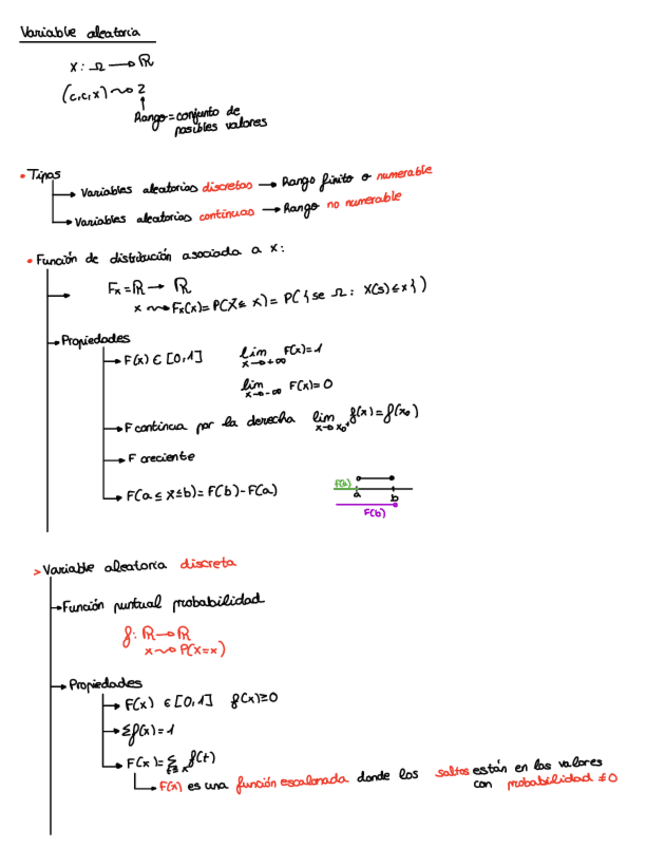 Variable aleatoria
X: Ω → ℝ
(c,c,x) ~> 2
Rango = conjunto de
posibles valores
• Tipos
→ Variables aleatorias discretas → Rango finito o numerable
→ Variables aleatorias continuas → Rango no numerable
• Función de distribución asociada a x:
→ Fx = ℝ → ℝ
x ~> Fx(x) = P(X ≤ x) = P({s ∈ Ω : X(s) ≤ x})
→ Propiedades
→ F(x) ∈ [0,1] lim x→+∞ F(x) = 1
lim x→-∞ F(x) = 0
→ F continua por la derecha lim x→x₀⁺ f(x) = f(x₀)
→ F creciente
→ F(a ≤ X ≤ b) = F(b) - F(a)
F(a)
a b
F(b)
> Variable aleatoria discreta
→ Función puntual probabilidad
f: ℝ → ℝ
x ~> P(X=x)
→ Propiedades
→ F(x) ∈ [0,1] f(x) ≥ 0
→ Σf(x) = 1
→ F(x) = Σ t≤x f(t)
→ F(x) es una función escalonada donde los saltos están en los valores
con probabilidad ≠ 0